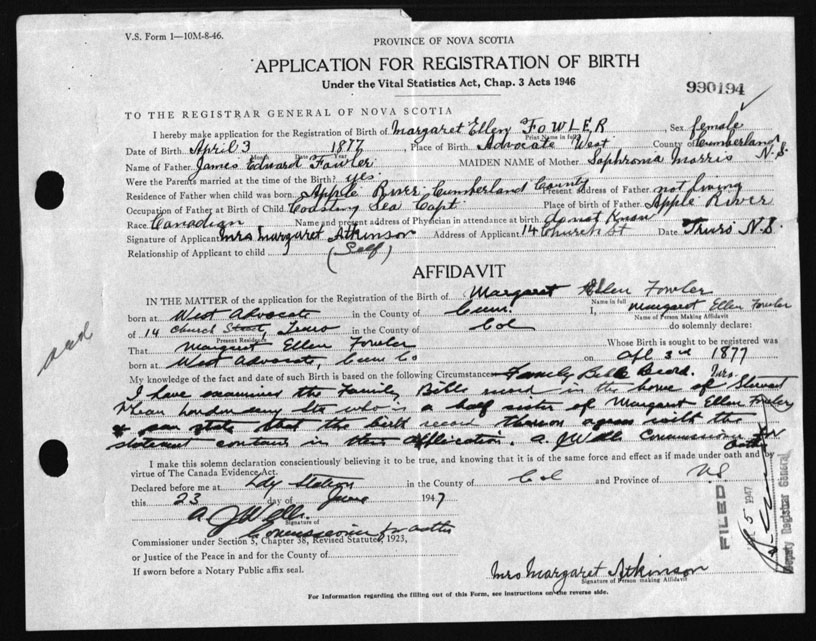 V.S. Form 1—10M-8-46.
PROVINCE OF NOVA SCOTIA
APPLICATION FOR REGISTRATION OF BIRTH
Under the Vital Statistics Act, Chap. 3 Acts 1946
990194
TO THE REGISTRAR GENERAL OF NOVA SCOTIA
I hereby make application for the Registration of Birth of Margaret Ellen FOWLER Sex female
Print Name in full
Date of Birth April 3 1877, Place of Birth Advocate West County of Cumberland
Month Date Year
Name of Father James Edward Fowler MAIDEN NAME of Mother Sophronia Morris N.S.
Were the Parents married at the time of the Birth? yes.
Residence of Father when child was born Apple River Cumberland County Present address of Father not living
Occupation of Father at Birth of Child Coasting Sea Capt. Place of birth of Father Apple River
Race Canadian Name and present address of Physician in attendance at birth do not know
Signature of Applicant Mrs Margaret Atkinson Address of Applicant 14 Church St Date Truro N.S.
Relationship of Applicant to child (Self)
AFFIDAVIT
IN THE MATTER of the application for the Registration of the Birth of Margaret Ellen Fowler
Name in full
born at West Advocate in the County of Cum. I, Margaret Ellen Fowler
Name of Person Making Affidavit
of 14 Church Street, Truro in the County of Col do solemnly declare:
Present Residence
That Margaret Ellen Fowler Whose Birth is sought to be registered was
born at West Advocate, Cum Co on Apl 3rd 1877
My knowledge of the fact and date of such Birth is based on the following Circumstances Family Bible Record.
I have examined the Family Bible record in the home of Mrs. Stewart
who is a half sister of Margaret Ellen Fowler
& can state that the birth record thereon agrees with the
statement contained in this application. A. J. Wells Commissioner for
Oaths
I make this solemn declaration conscientiously believing it to be true, and knowing that it is of the same force and effect as if made under oath and by
virtue of The Canada Evidence Act.
Declared before me at Ldy Station in the County of Col and Province of N.S
this 23 day of June 1947
A J Wells
Signature of
Commissioner for oaths
Commissioner under Section 5, Chapter 38, Revised Statutes, 1923,
or Justice of the Peace in and for the County of
If sworn before a Notary Public affix seal.
Mrs Margaret Atkinson
Signature of Person making Affidavit
For Information regarding the filling out of this Form, see instructions on the reverse side.
FILED
5 1947
Deputy Registrar General